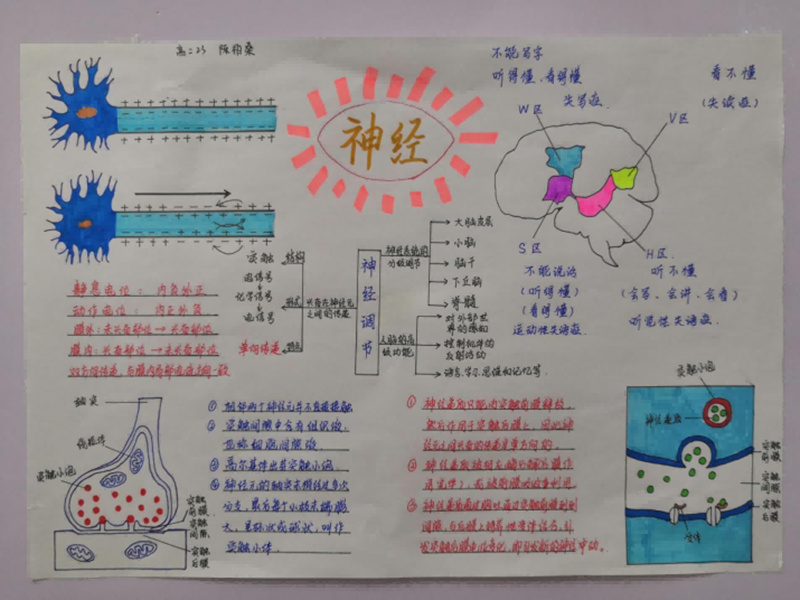 高二23 陈相桑
神经
不能写字
听得懂、看得懂
失写症
W区
看不懂
(失读症)
V区
S区
不能说话
(听得懂)
(看得懂)
运动性失语症
H区
听不懂
(会写、会讲、会看)
听觉性失语症
静息电位:内负外正
动作电位:内正外负
膜外:未兴奋部位→兴奋部位
膜内:兴奋部位→未兴奋部位
双向传递,与膜内
神经调节
兴奋在神经元之间的传递
结构
突触
形式
电信号
化学信号
电信号
特点
单向传递
神经系统的分级调节
大脑皮层
小脑
脑干
下丘脑
脊髓
人脑的高级功能
对外部世界的感知
控制机体的反射活动
语言、学习、思维和记忆等
轴突
线粒体
突触小泡
突触前膜
突触间隙
突触后膜
① 相邻两个神经元并不直接接触
② 突触间隙中含有组织液,
③ 高尔基体出芽突触小泡。
④ 神经元的轴突末梢经过多次
分支,最后每个小枝末端膨
大,呈杯状或球状,叫作
突触小体。
① 神经递质只能由突触前膜释放,
然后作用于突触后膜上,因此神
经元之间兴奋的传递是单方向的。
②
③
突触小泡
神经递质
突触前膜
突触间隙
突触后膜
受体